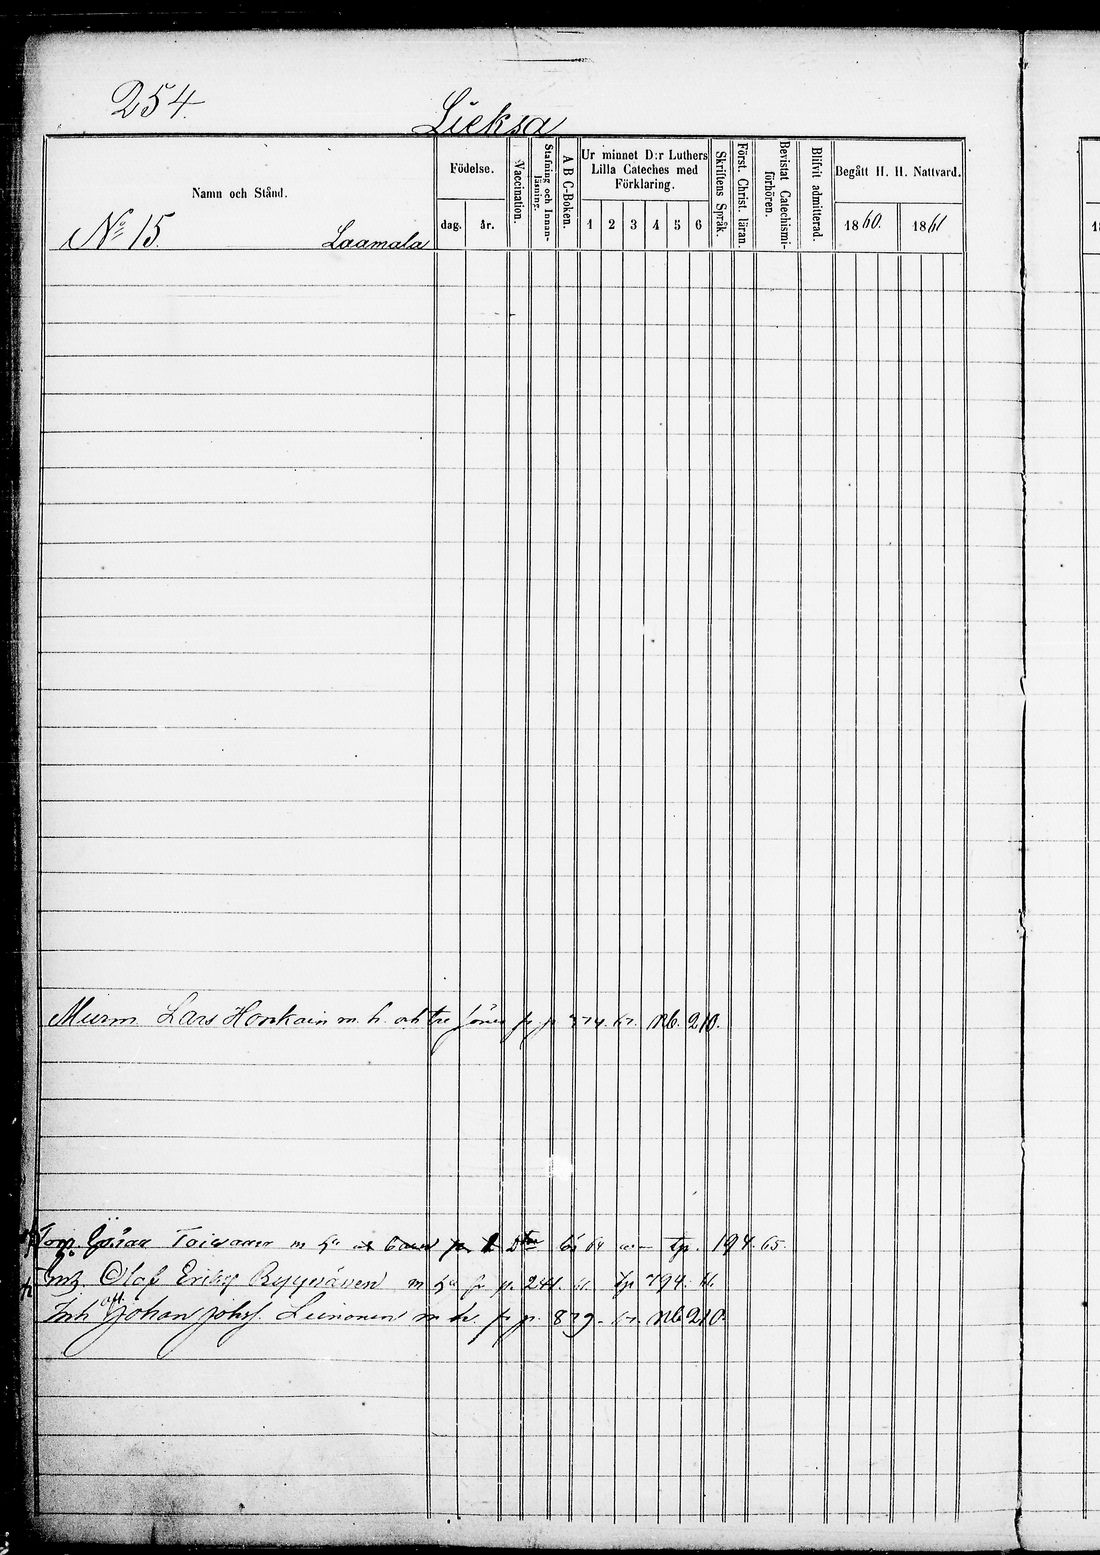 254.
Lieksa
Namn och Stånd.
Födelse.
dag.
år.
Vaccination.
Stafning och Innan-läsning.
A B C-Boken.
Ur minnet D:r Luthers Lilla Cateches med Förklaring.
1 2 3 4 5 6
Skriftens Språk.
Först. Christ. läran.
Bevistat Catechismi-förhören.
Blifvit admitterad.
Begått H. H. Nattvard.
1860. 1861
No 15. Laamala
Murm. Lars Honkain m. h. och tre söner fr p Nb. 210.
Toivanen m 194. 65.
Olof Ersky m fr p. 241. 794.
Inh Johan Johsf. Leinonen m h. fr p. 839. Nb 210.